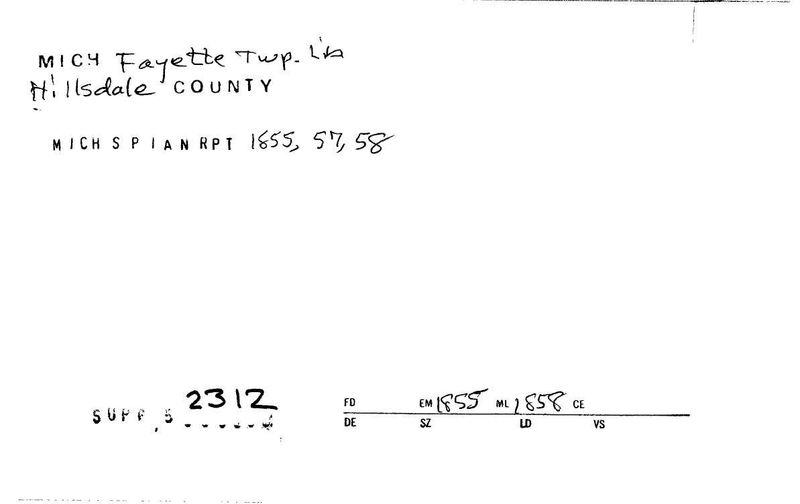 MICH Fayette Twp. Lib
Hillsdale COUNTY
MICH S P I AN RPT 1855, 57, 58
SUPP. 5 2312
FD EM 1855 ML 1858 CE
DE SZ LD VS